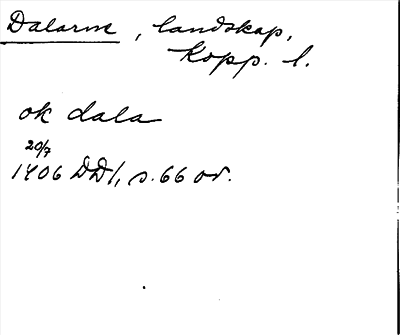 Dalarne, landskap,
Kopp. l.
ok dala
20/7
1406 DD 1, s. 66 or.